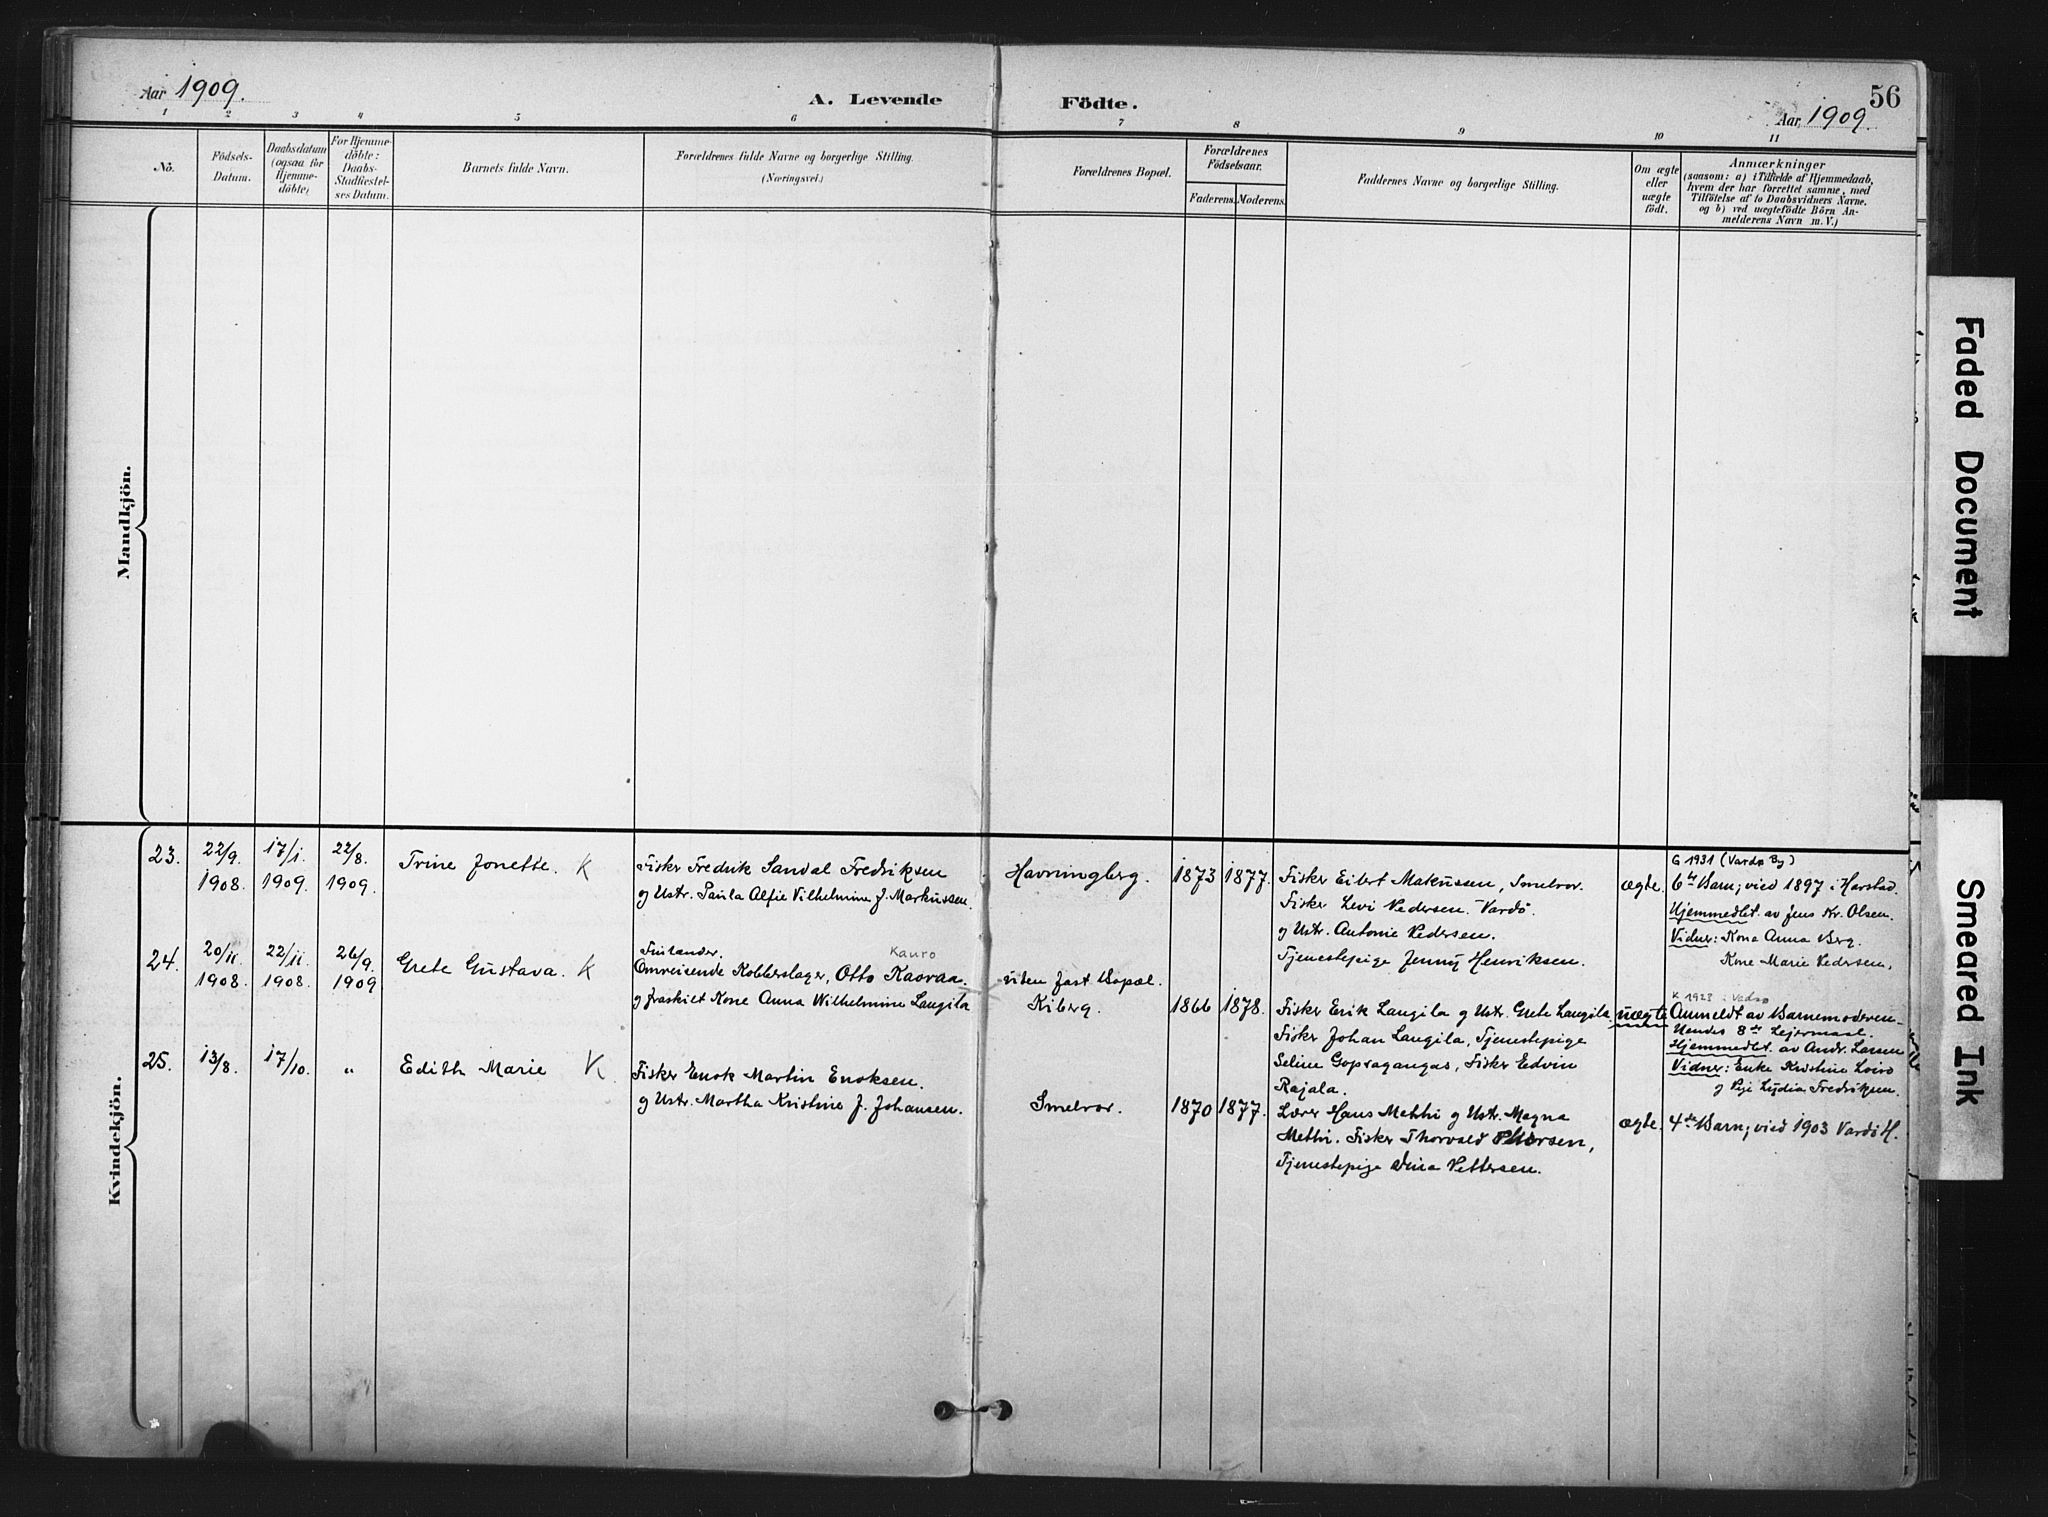 Aar 1909.
A. Levende Födte.
56
Aar 1909.
1 2 3 4 5 6 7 8 9 10 11
No.
Födsels-
Datum.
Daabsdatum
(ogsaa for
Hjemme-
döbte)
For Hjemme-
döbte:
Daabs-
Stadfæstel-
ses Datum.
Barnets fulde Navn.
Forældrenes fulde Navne og borgerlige Stilling.
(Næringsvei.)
Forældrenes Bopæl.
Forældrenes
Födselsaar.
Faderens. Moderens.
Faddernes Navne og borgerlige Stilling.
Om ægte
eller
uægte
födt.
Anmærkninger
(saasom: a) i Tilfælde af Hjemmedaab,
hvem der har forrettet samme, med
Tilföielse af to Daabsvidners Navne.
og b) ved uægtefödte Börn An-
melderens Navn m. V.)
Mandkjön.
Kvindekjön.
23.
22/9.
1908.
17/1.
1909.
22/8.
1909.
Trine Jonette. K
Fisker Fredrik Sandal Fredriksen
og Ustr. Paula Alfie Vilhelmine f. Markussen.
Havningberg.
1873 1877.
Fisker Eilert Makussen, Smelror.
Fisker Levi Pedersen. Vardö.
og Ustr. Antonie Pedersen.
Tjenestepige Jenny Henriksen.
ægte.
G 1931 (Vardø By)
6te Barn; viet 1897 i Harstad.
Hjemmedbt. av Jens Kr. Olsen.
Vidner: Kona Anna Berg.
Kone Marie Pedersen,
24.
20/11.
1908.
22/11.
1908.
26/9.
1909
Grete Gustava. K
Finlænder. Kauro
Omreisende Kobberslager, Otto Kaoraa.
og fraskilt Kone Anna Wilhelmine Laugila
uden fast Bopæl.
Kiberg.
1866 1878.
Fisker Erik Laugila og Ustr. Grete Laugila
Fisker Johan Laugila, Tjenestepige
Seline Gopragangas, Fisker Edvin
Rajala.
uægte
K 1923 i Vadsø
Anmeldt av Barnemoderen
8de Leiermaal.
Hjemmedbt. av Andr. Larsen
Vidner: Enke Kristine Loiro
og Pige Lydia Fredriksen.
25.
13/8.
17/10.
"
Edith Marie K
Fisker Enok Martin Enoksen.
og Ustr. Martha Kristine f. Johansen.
Smelror.
1870 1877.
Lærer Hans Methi og Ustr. Magna
Methi. Fisker Thorvald Thorsen,
Tjenestepige Dina Pettersen.
ægte.
4de Barn; viet 1903 Vardö H.
Faded Document
Smeared Ink